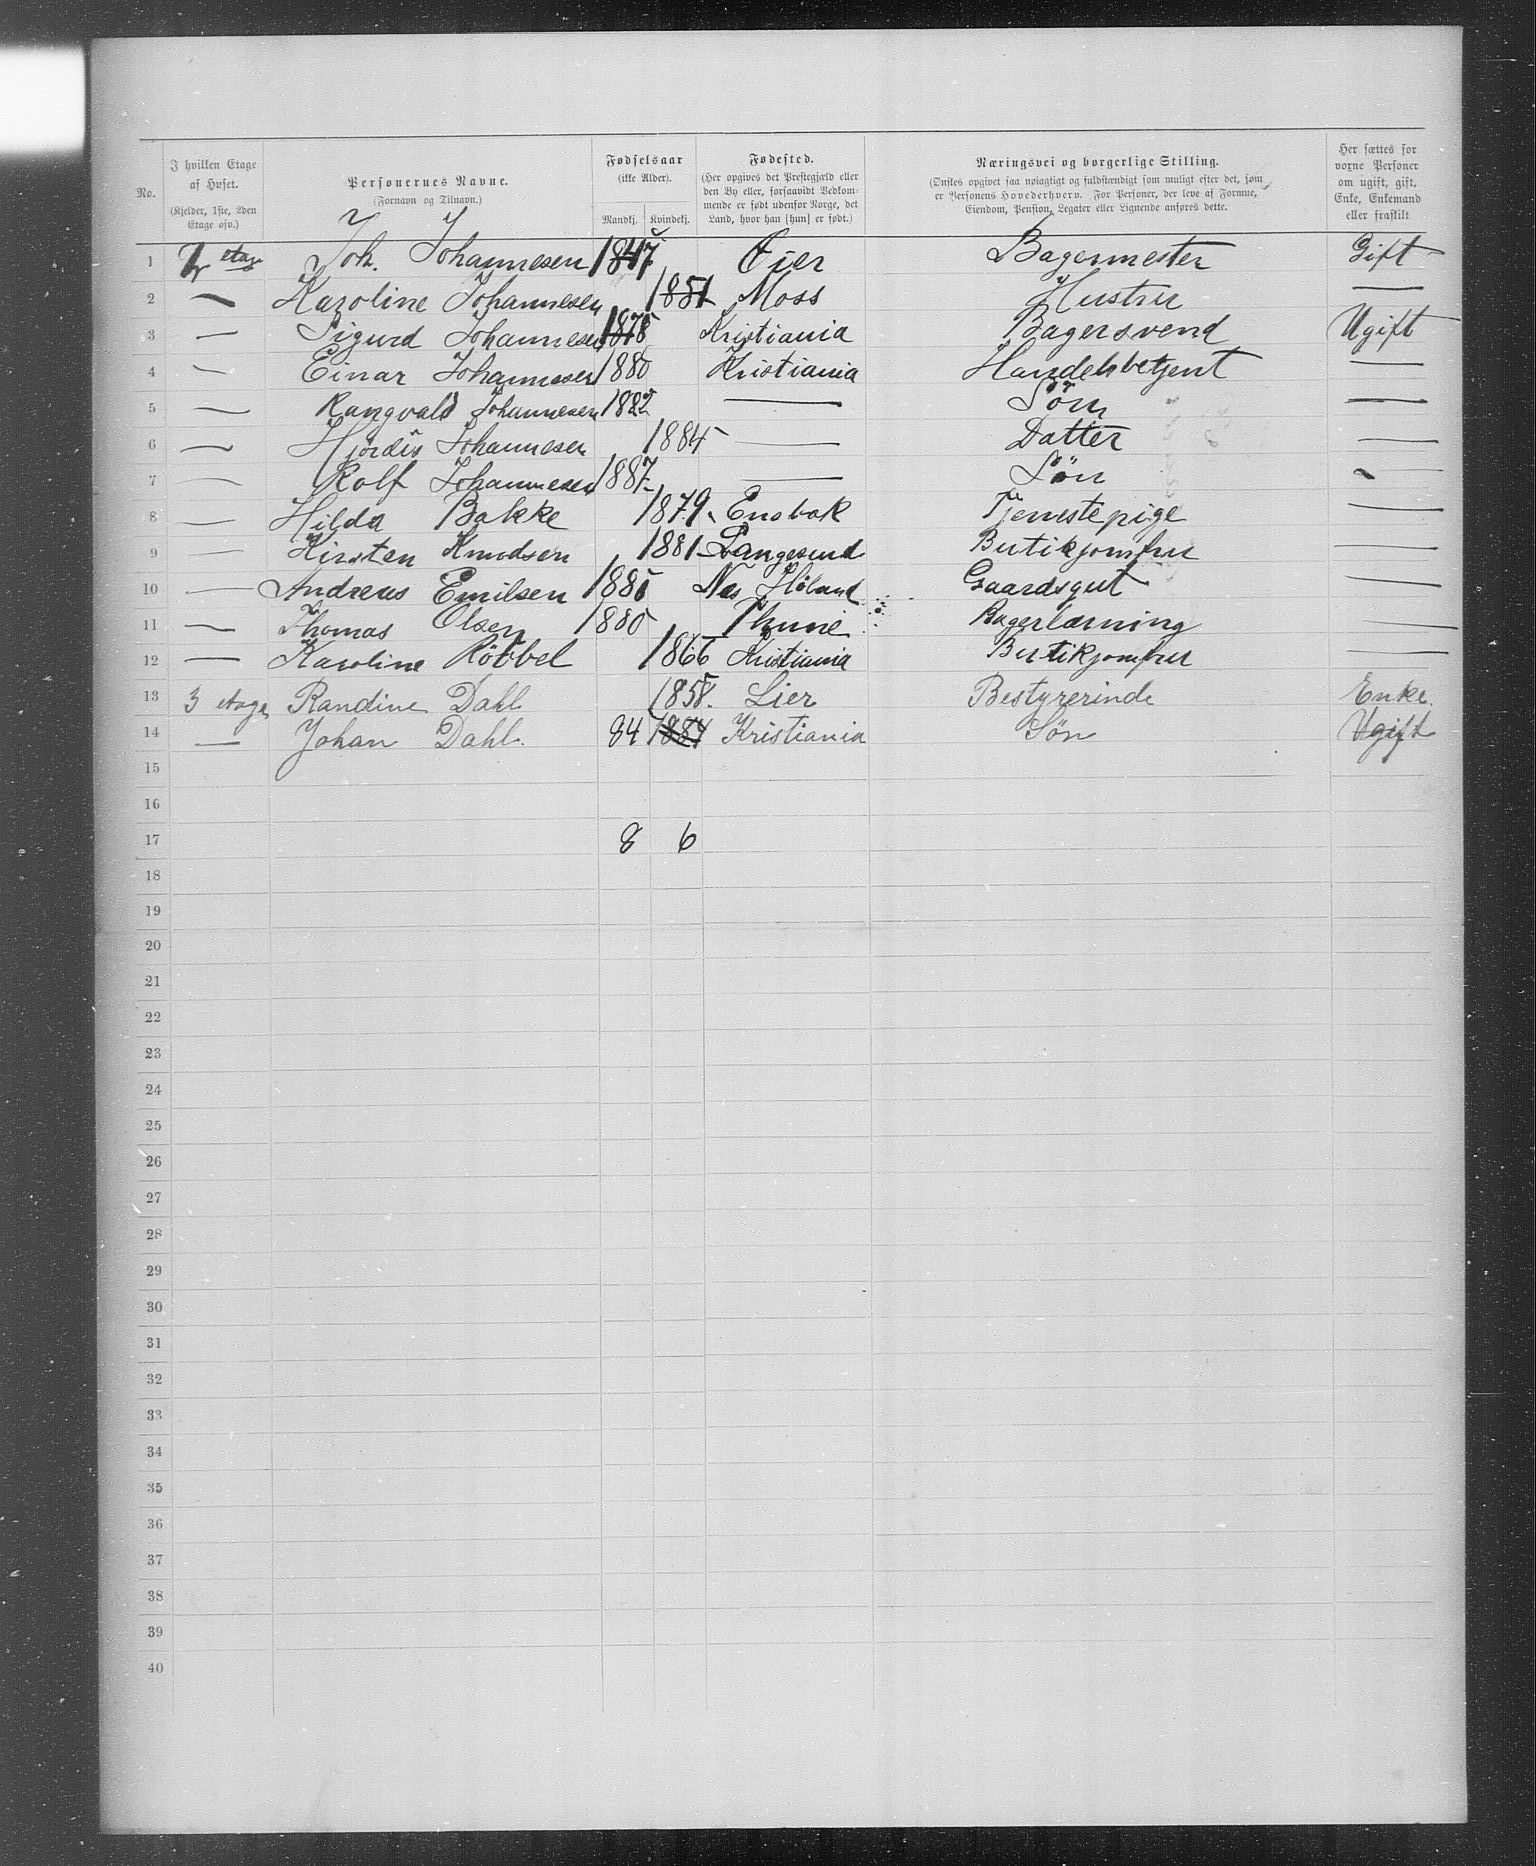 No. | I hvilken Etage af Huset. (Kjelder, 1ste, 2den Etage osv.) | Personernes Navne. (Fornavn og Tilnavn.) | Fødselsaar (ikke Alder). Mandkj. | Kvindekj. | Fødested. (Her opgives det Prestegjæld eller den By eller, forsaavidt Vedkommende er født udenfor Norge, det Land, hvor han [hun] er født.) | Næringsvei og borgerlige Stilling. (Ønskes opgivet saa nøiagtigt og fuldstændigt som muligt efter det, som er Personens Hovederhverv. For Personer, der leve af Formue, Eiendom, Pension, Legater eller Lignende anføres dette. | Her sættes for voxne Personer om ugift, gift, Enke, Enkemand eller fraskilt
1 2 etag Joh. Johannesen 1847 Öier Bagermester Gift
2 — Karoline Johannesen 1851 Moss Hustru —
3 — Sigurd Johannesen 1878 Kristiania Bagersvend Ugift
4 — Einar Johannesen 1880 Kristiania Handelsbetjent —
5 — Rangvald Johannesen 1882 — Sön —
6 — Hjördis Johannesen 1884 — Datter —
7 — Rolf Johannesen 1887 — Sön -
8 — Hilda Bakke 1879 Enebak Tjenestepige —
9 — Kirsten Knudsen 1881 Langesund Butikjomfru —
10 — Andreas Emilsen 1881 Nes Höland Gaardsgut —
11 — Thomas Olsen 1880 Thune Bagerlærning —
12 — Karoline Röbbel 1866 Kristiania Butikjomfru —
13 3 etage Randine Dahl 1858. Lier Bestyrerinde Enke.
14 — Johan Dahl. 84 1884 Kristiania Sön Ugift
15
16
17 8 6
18
19
20
21
22
23
24
25
26
27
28
29
30
31
32
33
34
35
36
37
38
39
40